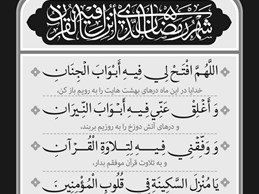 شهر رمضان الذي أنزل فيه القرآن
اللَّهُمَّ افْتَحْ لِي فِيهِ أَبْوَابَ الْجِنَانِ
خدایا در این ماه درهای بهشت هایت را به رویم باز کن،
وَ أَغْلِقْ عَنِّي فِيهِ أَبْوَابَ النِّيرَانِ
و درهای آتش دوزخ را به رویم بربند،
وَ وَفِّقْنِي فِيهِ لِتِلاَوَةِ الْقُرْآنِ
و به تلاوت قرآن موفقم بدار،
يَا مُنْزِلَ السَّكِينَةِ فِي قُلُوبِ الْمُؤْمِنِينَ